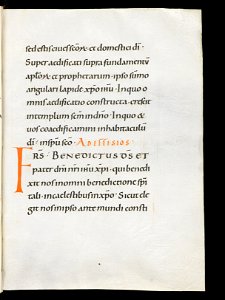 sed estis cives scōrū et domestici dī ·
Super aedificati supra fundamentū
aplōrū et prophetarum · ipso sūmo
angulari lapide xp̄o ihū · In quo o
mnis aedificatio constructa · crescit
in templum scm̄ in dn̄o · In quo &
uos coaedificamini in habitaculū
dī · in sp̄u scō · Ad Efesios
FRS · Benedictus dō et
pater dn̄i nr̄i ihū xp̄i · qui bened
ixit nos in omni benedictione spi
tali · in caelestibus in xp̄o · Sicut ele
git nos in ipso ante mundi consti